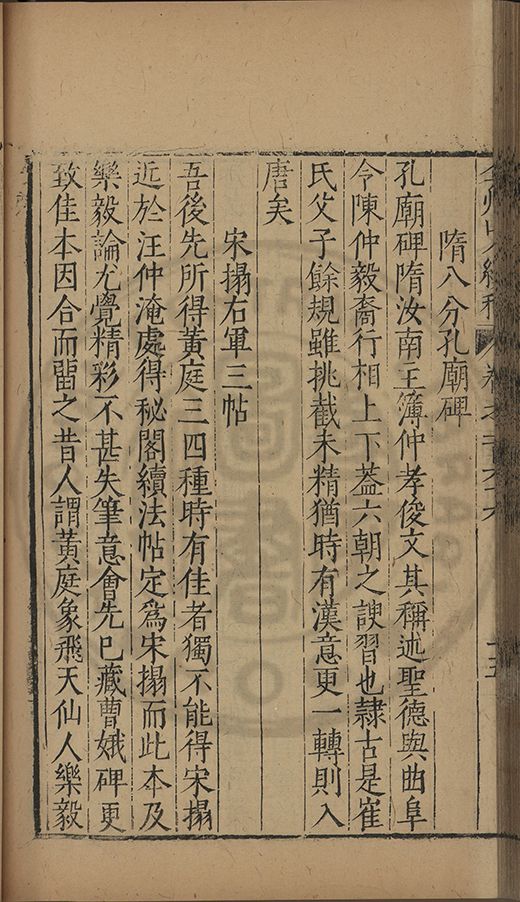 隋八分孔廟碑
孔廟碑隋汝南主簿仲孝俊文其稱述聖德與曲阜
令陳仲毅裔行相上下葢六朝之諛習也隷古是崔
氏父子餘規雖挑截未精猶時有漢意更一轉則入
唐矣
宋搨右軍三帖
吾後先所得黃庭三四種時有佳者獨不能得宋搨
近於汪仲淹處得秘閣續法帖定爲宋搨而此本及
樂毅論尤覺精彩不甚失筆意會先已藏曹娥碑更
致佳本因合而畱之昔人謂黃庭象飛天仙人樂毅